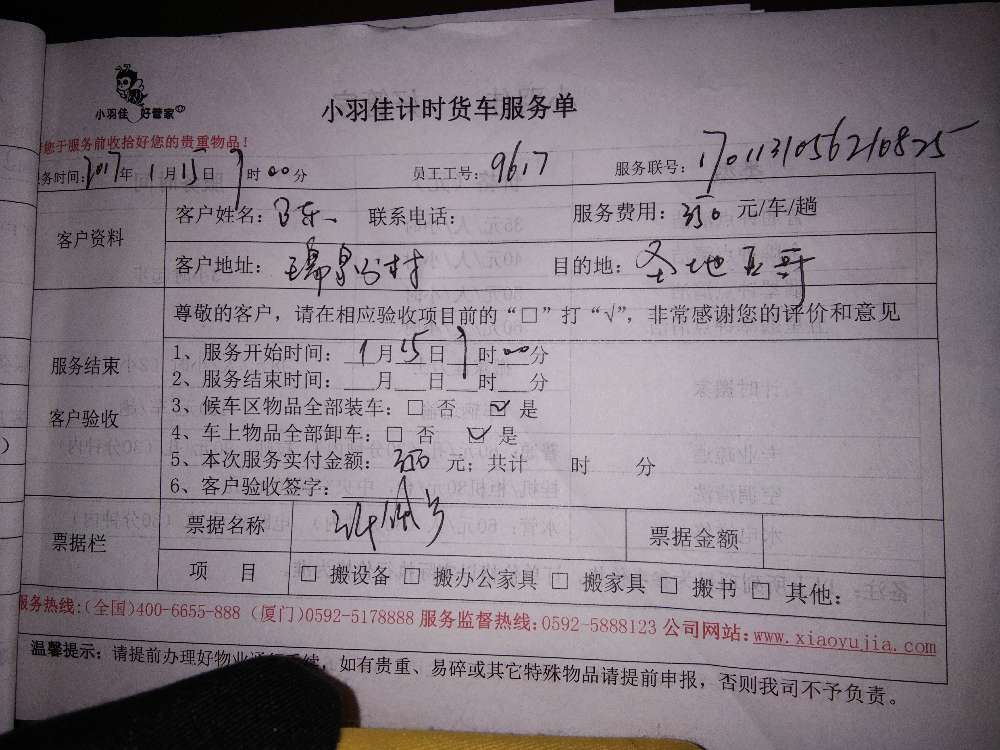 小羽佳 好管家
小羽佳计时货车服务单
您于服务前收拾好您的贵重物品!
务时间:2017年 1月15日 7时00分 员工工号:9617 服务联号:1701131056210825
客户资料 客户姓名:陈 联系电话: 服务费用:350 元/车/趟
客户地址: 村 目的地:圣地亚哥
尊敬的客户,请在相应验收项目前的“□”打“√”,非常感谢您的评价和意见
服务结束
客户验收
1、服务开始时间:1月15日7时00分
2、服务结束时间:___月___日___时___分
3、候车区物品全部装车:□ 否 ☑ 是
4、车上物品全部卸车:□ 否 ☑ 是
5、本次服务实付金额: 350 元;共计 时 分
6、客户验收签字:
票据栏 票据名称 票据金额
项 目 □ 搬设备 □ 搬办公家具 □ 搬家具 □ 搬书 □ 其他:
服务热线:(全国)400-6655-888 (厦门)0592-5178888 服务监督热线:0592-5888123 公司网站:www.xiaoyujia.com
温馨提示:请提前办理好物业,如有贵重、易碎或其它特殊物品请提前申报,否则我司不予负责。